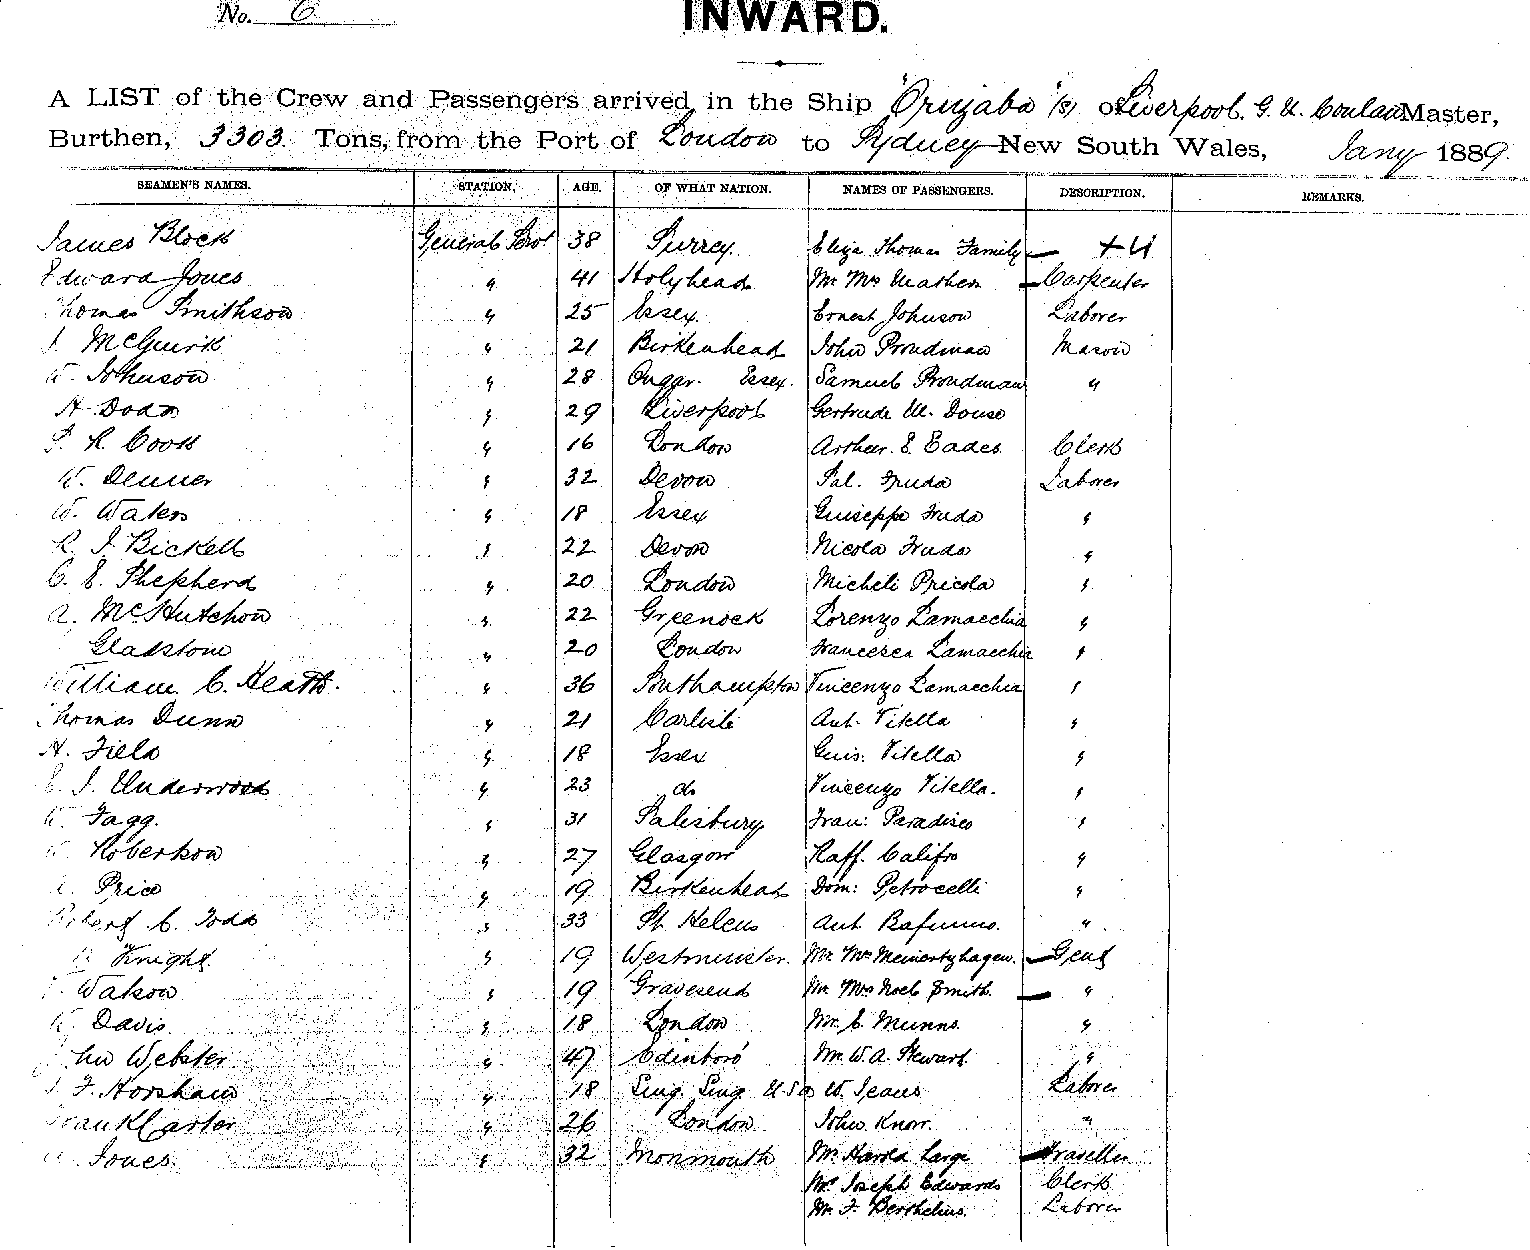 No. 6
INWARD.
A LIST of the Crew and Passengers arrived in the Ship "Orizaba" (s) of Liverpool. G. N. Conlan Master,
Burthen, 3303 Tons, from the Port of London to Sydney New South Wales, Jany 1889.
SEAMEN'S NAMES. STATION. AGE. OF WHAT NATION. NAMES OF PASSENGERS. DESCRIPTION. REMARKS.
James Block General Servt 38 Surrey. Eliza Thomas Family — + 4
Edward Jones " 41 Holyhead Mr Mrs Mathen — Carpenter
Thomas Smithson " 25 Essex. Ernest Johnson Laborer
J. McGuirk " 21 Birkenhead John Proudman Mason
W. Johnson " 28 Ongar. Essex. Samuel Proudman "
H. Doan " 29 Liverpool Gertrude M. Douse
R. Cook " 16 London Arthur. E. Eades. Clerk
W. Denner " 32 Devon Sal. Fruda Laborer
W. Waters " 18 Essex Guiseppe Fruda "
R. J. Bickell " 22 Devon Nicola Fruda "
C. E. Shepherd " 20 London Micheli Pricola "
A. McHutchon " 22 Greenock Lorenzo Lamacchia "
Gladstone " 20 London Francesca Lamacchia "
William C. Heath. " 36 Southampton Vincenzo Lamacchia "
Thomas Dunn " 21 Carlisle Ant. Vitella "
H. Field " 18 Essex Guis: Vitella "
J. Underwood " 23 do Vincenzo Vitella. "
W. Fagg. " 31 Salisbury Fran: Paradiso "
Robertson " 27 Glasgow Raff. Califro "
Price " 19 Birkenhead Dom: Petrocelli "
Robert C. Todd " 33 St Helens Ant. Bafunno. "
Knight " 19 Westminster. Mr Mrs Meinertzhagen. — Gent
Watson " 19 Gravesend Mr Mrs Noel Smith. — "
W. Davis. " 18 London Mr. C. Munns. "
John Webster " 47 Edinboro' Mr. W. A. Stewart "
F. Horsham " 18 Sing Sing U.S.A W. Jeans Laborer
Frank Carter " 26 London John Knorr. "
Jones. " 32 Monmouth Mr. Harold Large — Traveller
Mr Joseph Edwards Clerk
Mr. F. Berthelius. Laborer